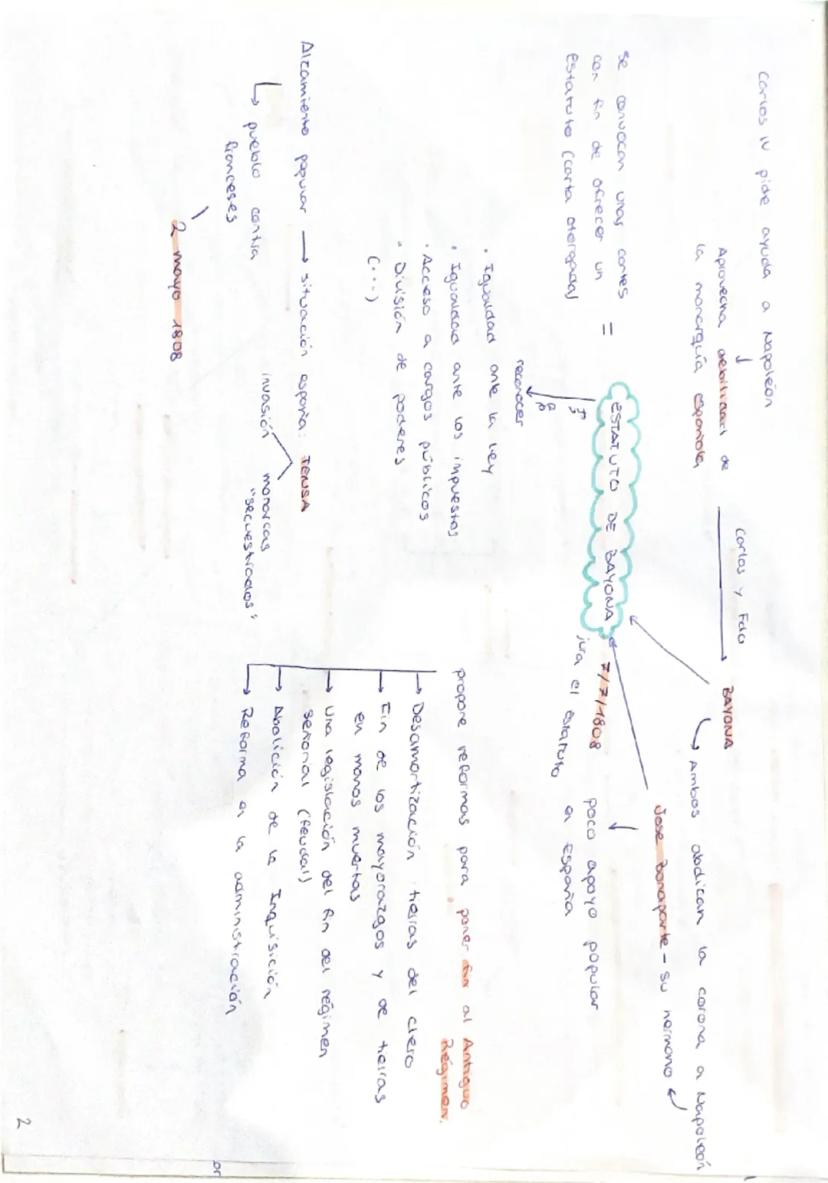 Carlos IV pide ayuda a Napoleón
Aprovecha debilidad de
la monarquía española
Carlos y Fdo
BAYONA
Ambos abdican la corona a Napoleón
Jose Bonaparte - su hermano
se convocan unas cortes
con fin de ofrecer un
estatuto (carta otorgada)
=
ESTATUTO DE BAYONA
7/7/1808
jura el estatuto
poco apoyo popular
en España
reconocer
· Igualdad ante la ley
· Igualdad ante los impuestos
· Acceso a cargos públicos
· División de poderes
(...)
propone reformas para poner fin al Antiguo
Régimen.
Desamortización tierras del clero
Fin de los mayorazgos y de tierras
en manos muertas
Una legislación del fin del régimen
señorial (feudal)
Abolición de la Inquisición
Reforma en la administración
Alzamiento popular → situación españa: TENSA
invasión
monarcas
"secuestrados"
pueblo contra
franceses
2 mayo 1808
2
or